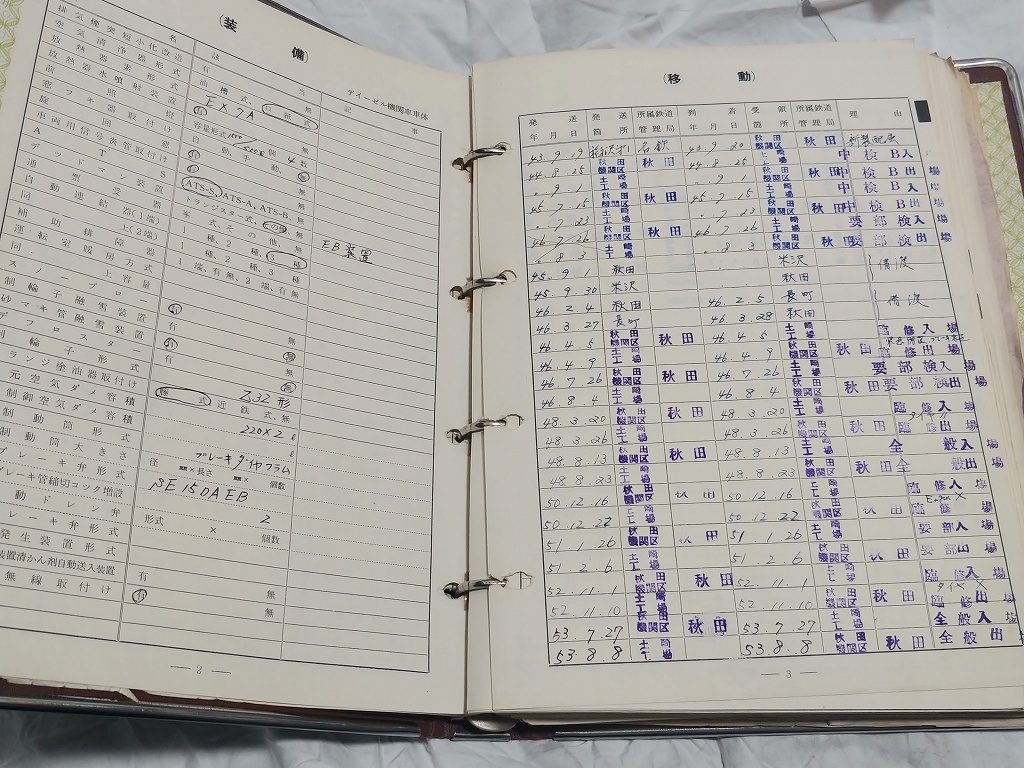 (装 備)
ディーゼル機関車車体
名 該 当 記 事
排気煙突短小化改造 有 無
空気清浄器形式 油槽式, 紙式
放熱器素形式 EX7A
放熱器水噴射装置 有 無
前照燈
窓フキ器
旋回窓
車両用信号炎管取付け
ATS ATS-S, ATS-A, ATS-B, 無
デッドマン装置 EB装置
通票受器
自動連結器(1端) 1種, 2種, 3種
同上(2端) 1種, 2種, 3種
補助排障器 1端, 有無, 2端, 有無
運転室暖房方式
同容量
スノープロー 有
制輪子融雪装置 有 無
砂マキ管融雪装置 有
デフロスター 有 無
制輪子形式 Z32形
フランジ塗油器取付け 式, 近鉄式, 無
元空気ダメ容積 220×2
制御空気ダメ容積
制動筒形式 ブレーキダイヤフラム
制動筒大きさ 径 ×長さ × 個数
ブレーキ弁形式 BE15DAEB
ブレーキ管締切コック増設
自動ドレン弁 形式 × 2 個数
無線取付け 有 無
— 2 —
(移 動)
発送年月日 発送箇所 所属鉄道管理局 到着年月日 受領箇所 所属鉄道管理局 理由
43.9.19 名鉄 43.9.20 秋田機関区 秋田 新製配属
44.8.25 秋田機関区 秋田 44.8.25 土崎工場 中検B入場
〃.9.1 土崎工場 〃.9.1 秋田機関区 秋田 中検B出場
45.7.15 秋田機関区 秋田 45.7.15 土崎工場 中検B入場
〃.7.23 土崎工場 〃.7.23 秋田機関区 秋田 中検B出場
46.7.26 秋田機関区 秋田 46.7.26 土崎工場 要部検入場
〃.8.3 土崎工場 〃.8.3 秋田機関区 秋田 要部検出場
45.9.1 秋田 米沢 借渡
45.9.30 米沢 秋田
46.2.4 秋田 46.2.5 長町 借渡
46.3.27 長町 46.3.28 秋田
46.4.5 秋田機関区 秋田 46.4.5 土崎工場 臨修入場
46.4.9 土崎工場 46.4.9 秋田機関区 秋田 臨修出場
46.7.26 秋田機関区 秋田 46.7.26 土崎工場 要部検入場
46.8.4 土崎工場 46.8.4 秋田機関区 秋田 要部検出場
48.3.20 秋田機関区 秋田 48.3.20 土崎工場 臨修入場
48.3.26 土崎工場 48.3.26 秋田機関区 秋田 臨修出場
48.8.13 秋田機関区 秋田 48.8.13 土崎工場 全般入場
48.8.23 土崎工場 48.8.23 秋田機関区 秋田 全般出場
50.12.16 秋田機関区 秋田 50.12.16 土崎工場 臨修入場
50.12.22 土崎工場 50.12.22 秋田機関区 秋田 臨修出場
51.1.26 秋田機関区 秋田 51.1.26 土崎工場 要部入場
51.2.6 土崎工場 51.2.6 秋田機関区 秋田 要部出場
52.11.1 秋田機関区 秋田 52.11.1 土崎工場 臨修入場
52.11.10 土崎工場 52.11.10 秋田機関区 秋田 臨修出場
53.7.27 秋田機関区 秋田 53.7.27 土崎工場 全般入場
53.8.8 土崎工場 53.8.8 秋田機関区 秋田 全般出場
— 3 —